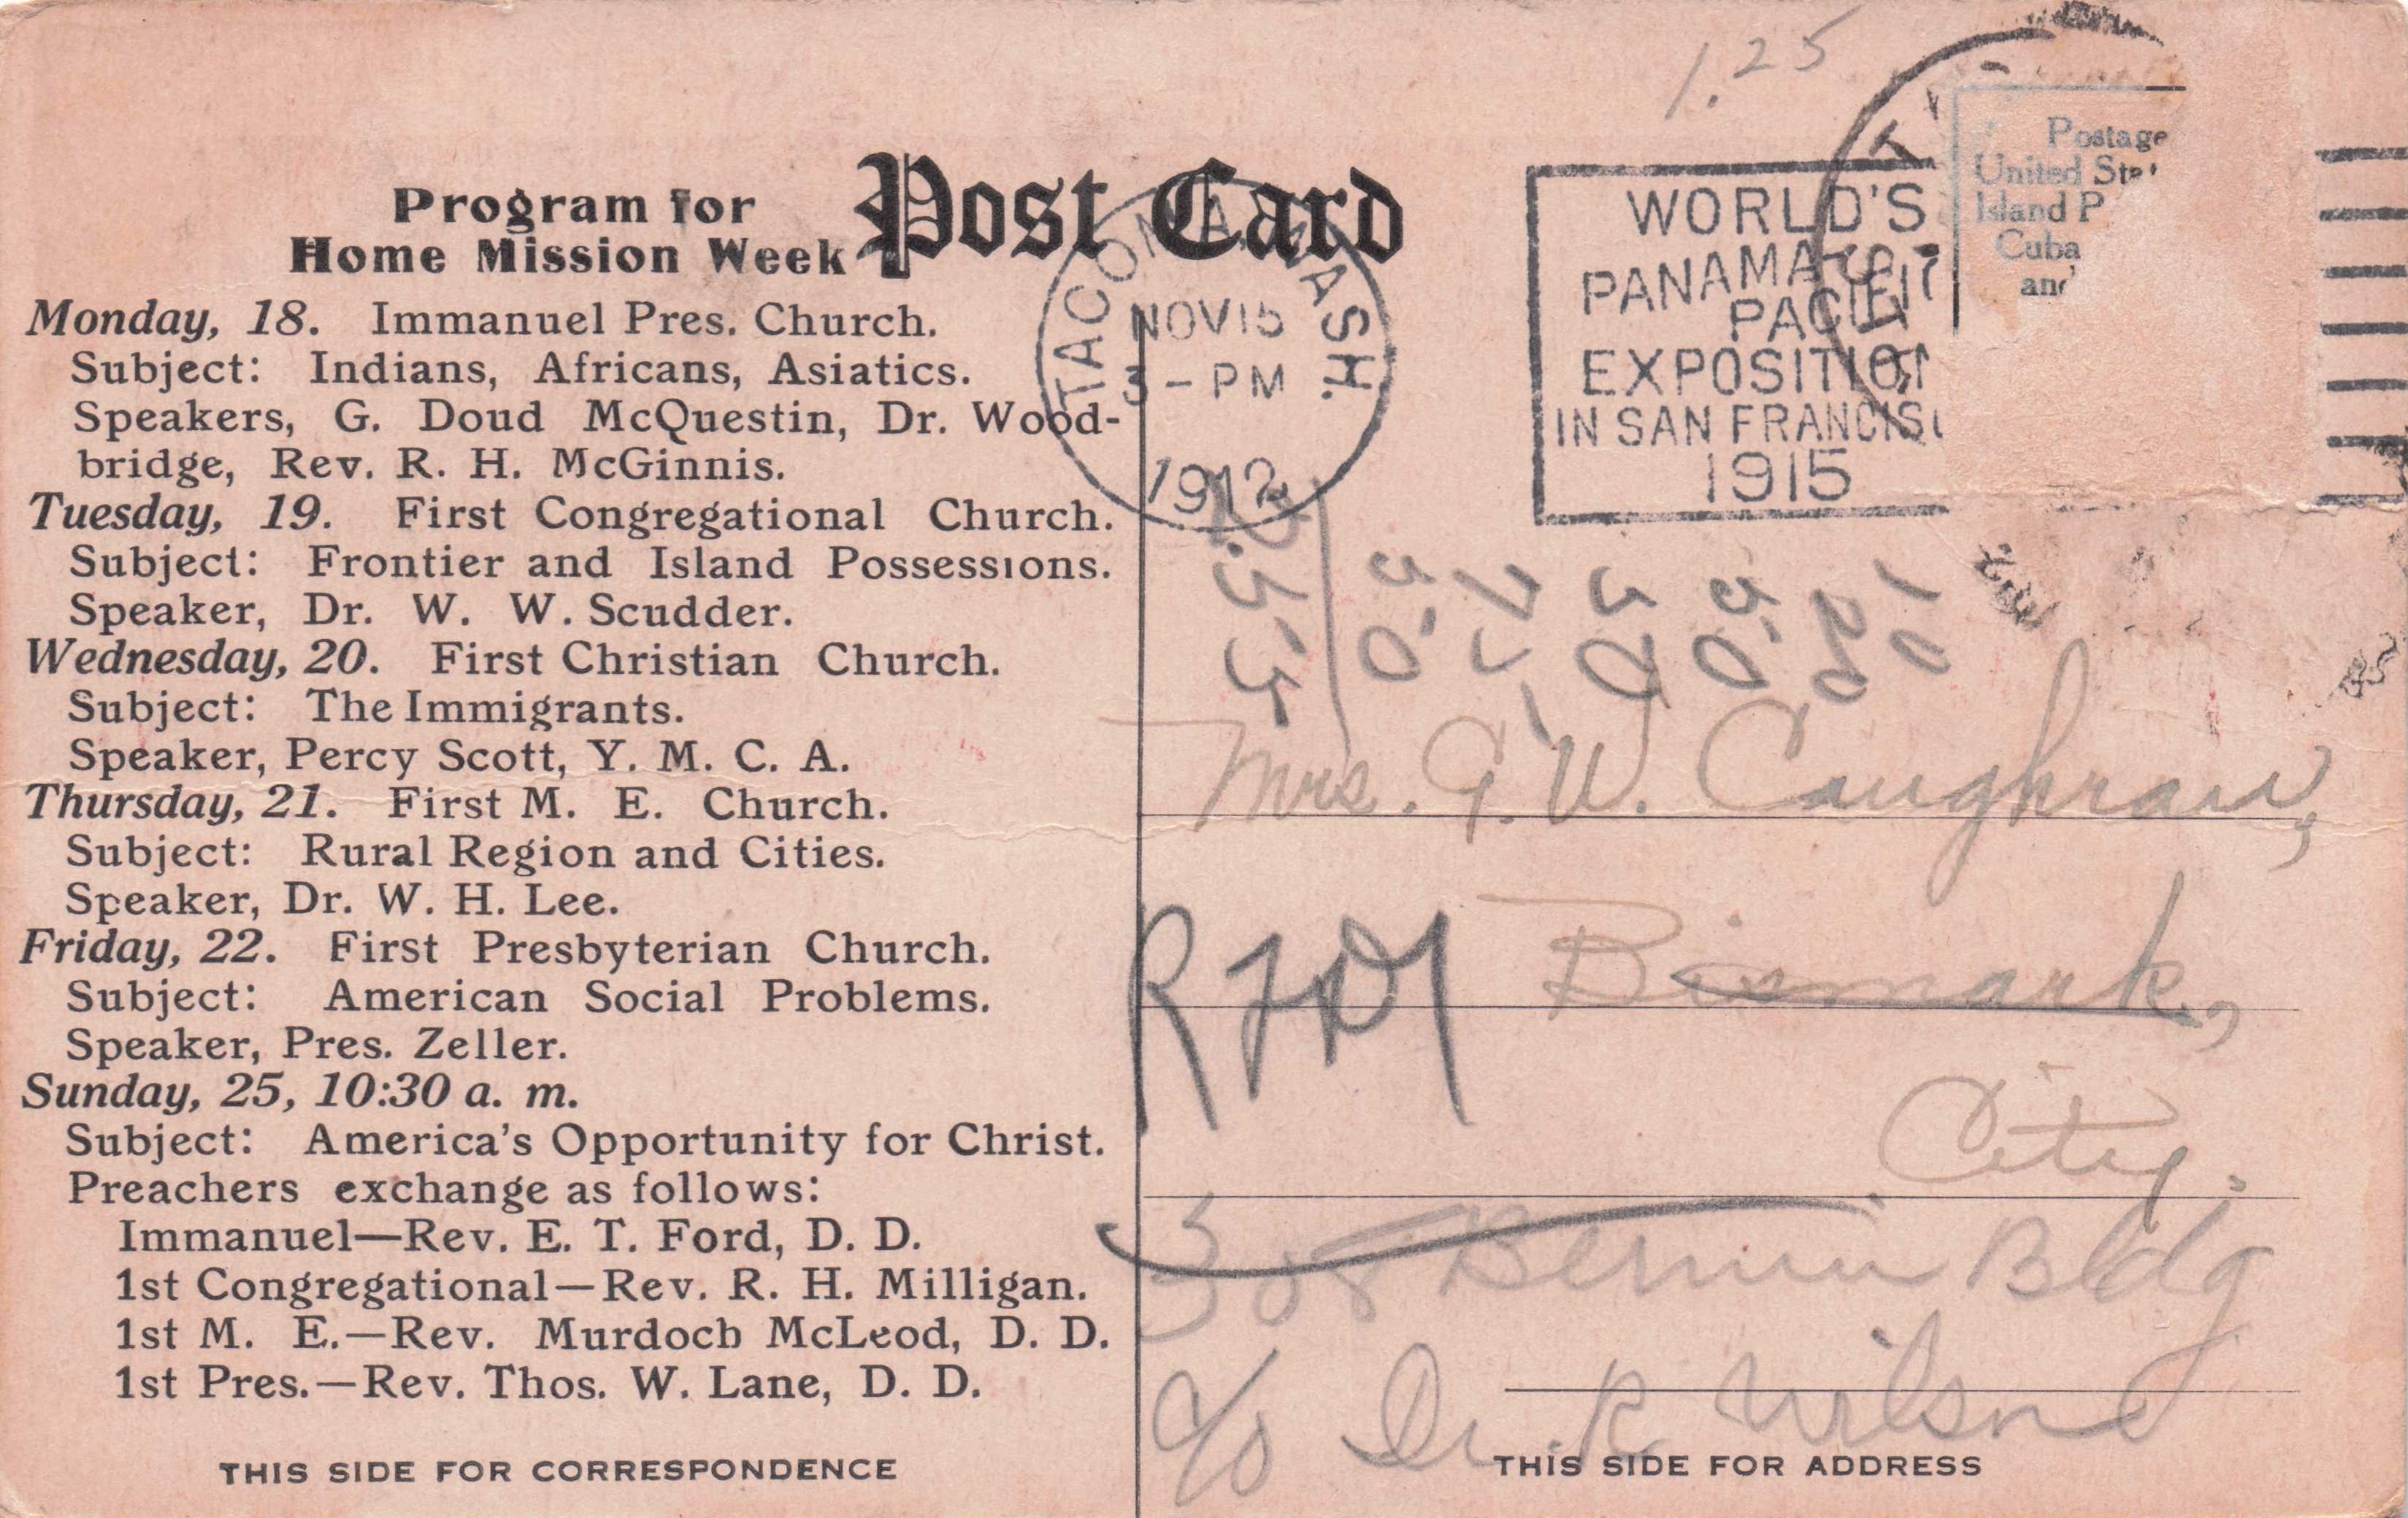 1.25
Post Card
Program for
Home Mission Week
Monday, 18. Immanuel Pres. Church.
Subject: Indians, Africans, Asiatics.
Speakers, G. Doud McQuestin, Dr. Wood-
bridge, Rev. R. H. McGinnis.
Tuesday, 19. First Congregational Church.
Subject: Frontier and Island Possessions.
Speaker, Dr. W. W. Scudder.
Wednesday, 20. First Christian Church.
Subject: The Immigrants.
Speaker, Percy Scott, Y. M. C. A.
Thursday, 21. First M. E. Church.
Subject: Rural Region and Cities.
Speaker, Dr. W. H. Lee.
Friday, 22. First Presbyterian Church.
Subject: American Social Problems.
Speaker, Pres. Zeller.
Sunday, 25, 10:30 a. m.
Subject: America's Opportunity for Christ.
Preachers exchange as follows:
Immanuel—Rev. E. T. Ford, D. D.
1st Congregational—Rev. R. H. Milligan.
1st M. E.—Rev. Murdoch McLeod, D. D.
1st Pres.—Rev. Thos. W. Lane, D. D.
THIS SIDE FOR CORRESPONDENCE
TACOMA, WASH.
NOV 15
3 - PM
1912
WORLD'S
PANAMA
PACIFIC
EXPOSITION
IN SAN FRANCISC
1915
Postage
United Sta
Island P
Cuba
and
10
20
50
50
50
Mrs. G. W. Caughran,
RFD1 Bismark,
City.
308 Bldg
c/o Dr R Wilson
THIS SIDE FOR ADDRESS